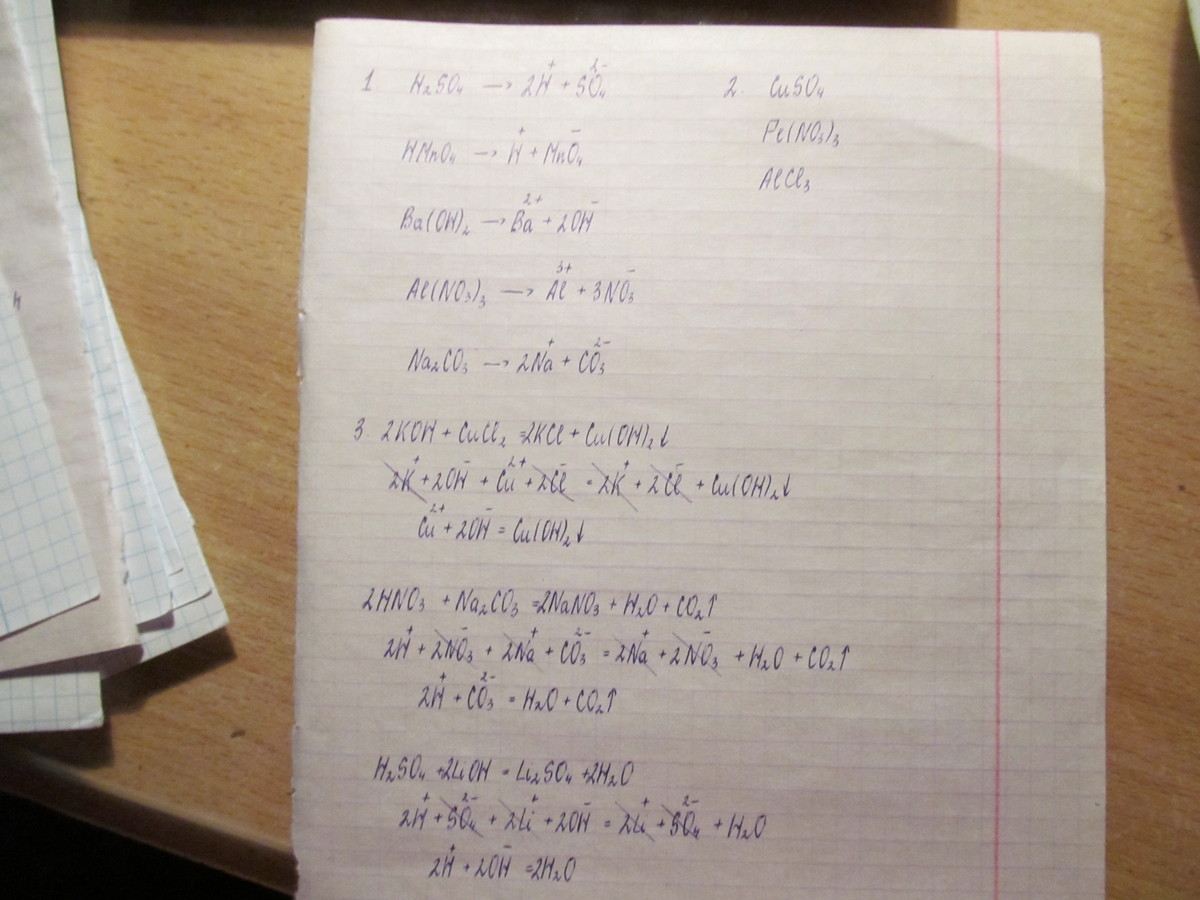 1. H₂SO₄ → 2H⁺ + SO₄²⁻
HMnO₄ → H⁺ + MnO₄⁻
Ba(OH)₂ → Ba²⁺ + 2OH⁻
Al(NO₃)₃ → Al³⁺ + 3NO₃⁻
Na₂CO₃ → 2Na⁺ + CO₃²⁻
2. CuSO₄
Fe(NO₃)₃
AlCl₃
3. 2KOH + CuCl₂ = 2KCl + Cu(OH)₂↓
2K⁺ + 2OH⁻ + Cu²⁺ + 2Cl⁻ = 2K⁺ + 2Cl⁻ + Cu(OH)₂↓
Cu²⁺ + 2OH⁻ = Cu(OH)₂↓
2HNO₃ + Na₂CO₃ = 2NaNO₃ + H₂O + CO₂↑
2H⁺ + 2NO₃⁻ + 2Na⁺ + CO₃²⁻ = 2Na⁺ + 2NO₃⁻ + H₂O + CO₂↑
2H⁺ + CO₃²⁻ = H₂O + CO₂↑
H₂SO₄ + 2LiOH = Li₂SO₄ + 2H₂O
2H⁺ + SO₄²⁻ + 2Li⁺ + 2OH⁻ = 2Li⁺ + SO₄²⁻ + H₂O
2H⁺ + 2OH⁻ = 2H₂O